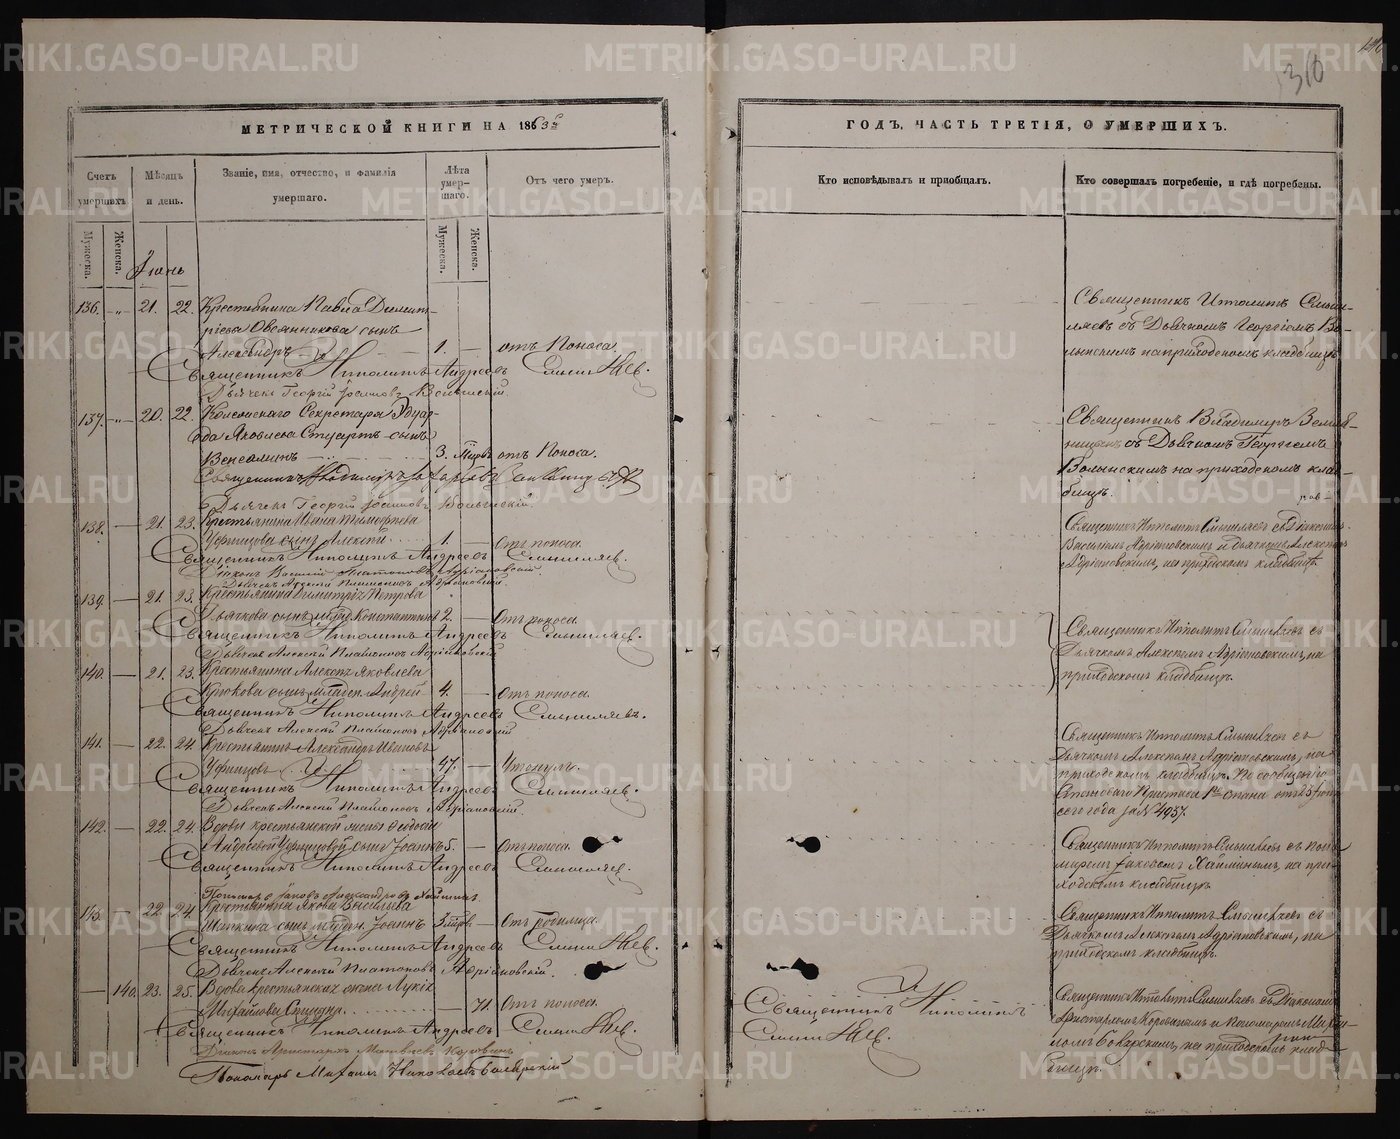 310
МЕТРИЧЕСКОЙ КНИГИ НА 1863 г
ГОДЪ, ЧАСТЬ ТРЕТІЯ, О УМЕРШИХЪ.
Счетъ умершихъ.
Мѣсяцъ и день.
Званіе, имя, отчество, и фамилія умершаго.
Лѣта умер-шаго.
Отъ чего умеръ.
Кто исповѣдывалъ и пріобщалъ.
Кто совершалъ погребеніе, и гдѣ погребены.
Мужеска.
Женска.
Мужеска.
Женска.
Іюнь
136. „ 21. 22. Крестьянина Павла Димит-
ріева Овсянникова сынъ
Александръ 1. отъ Поноса.
Священникъ Ипполитъ Андреевъ Смышляевъ.
Дьячекъ Георгій Волынскій.
Священникъ Ипполитъ Смыш-
ляевъ съ Дьячкомъ Георгіемъ Во-
лынскимъ на приходскомъ кладбищѣ
137. „ 20. 22. Секретаря Эдуар-
да Яковлева Стуартъ сынъ
Веніаминъ 3. отъ Поноса.
Священникъ Владиміръ
Дьячекъ Георгій Волынскій.
Священникъ Владиміръ
съ Дьячкомъ Георгіемъ
Волынскимъ на приходскомъ клад-
бищѣ.
138. 21. 23. Крестьянина Ивана Тимофеева
Уфинцова сынъ Алексѣй 1. Отъ поноса.
Священникъ Ипполитъ Андреевъ Смышляевъ.
Діаконъ Василій Платоновъ Адріановскій.
Дьячекъ Алексѣй Платоновъ Адріановскій.
Священникъ Ипполитъ Смышляевъ съ Діакономъ
Василіемъ Адріановскимъ и дьячкомъ Алексѣемъ
Адріановскимъ, на приходскомъ кладбищѣ.
139. 21. 23. Крестьянина Димитрія Петрова
Дьячкова сынъ млад. Константинъ 2. Отъ поноса.
Священникъ Ипполитъ Андреевъ Смышляев.
Дьячекъ Алексѣй Платоновъ Адріановскій
Священникъ Ипполитъ Смышляевъ съ
Дьячкомъ Алексѣемъ Адріановскимъ, на
приходскомъ кладбищѣ.
140. 21. 23. Крестьянина Алексѣя Яковлева
Крюкова сынъ младен. Андрей 4. Отъ поноса.
Священникъ Ипполитъ Андреевъ Смышляевъ.
Дьячекъ Алексѣй Платоновъ Адріановскій
141. 22. 24. Крестьянинъ Александръ Ивановъ
Уфинцовъ 47. Утонулъ.
Священникъ Ипполитъ Андреевъ Смышляев.
Дьячекъ Алексѣй Платоновъ Адріановскій.
Священникъ Ипполитъ Смышляевъ съ
Дьячкомъ Алексѣемъ Адріановскимъ, на
приходскомъ кладбищѣ. По сообщенію
Становаго Пристава 1го стана отъ 23 Іюня
сего года за № 4957.
142. 22. 24. Вдовы крестьянской жены Ѳеодосіи
Андреевой Уфинцовой сынъ Іоаннъ 5. Отъ поноса.
Священникъ Ипполитъ Андреевъ Смышляев.
Пономарь Іаковъ Александровъ
Священникъ Ипполитъ Смышляевъ съ поно-
маремъ Іаковомъ на при-
ходскомъ кладбищѣ.
143. 22. 24. Крестьянина Якова Васильева
Шапкина сынъ младен. Іоаннъ 3 Отъ родимца.
Священникъ Ипполитъ Андреевъ Смышляев.
Дьячекъ Алексѣй Платоновъ Адріановскій.
Священникъ Ипполитъ Смышляевъ съ
Дьячкомъ Алексѣемъ Адріановскимъ, на
приходскомъ кладбищѣ.
140. 23. 25. Вдова крестьянская жена Лукія
Михайлова 71. Отъ поноса.
Священникъ Ипполитъ Андреевъ Смышляев.
Діаконъ Аристархъ Матвѣевъ Коровинъ
Пономарь Михаилъ
Священникъ Ипполитъ
Смышляев.
Священникъ Ипполитъ Смышляевъ съ Діакономъ
Аристархомъ Коровинымъ и Пономаремъ Миха-
иломъ на приходскомъ клад-
бищѣ.
METRIKI.GASO-URAL.RU